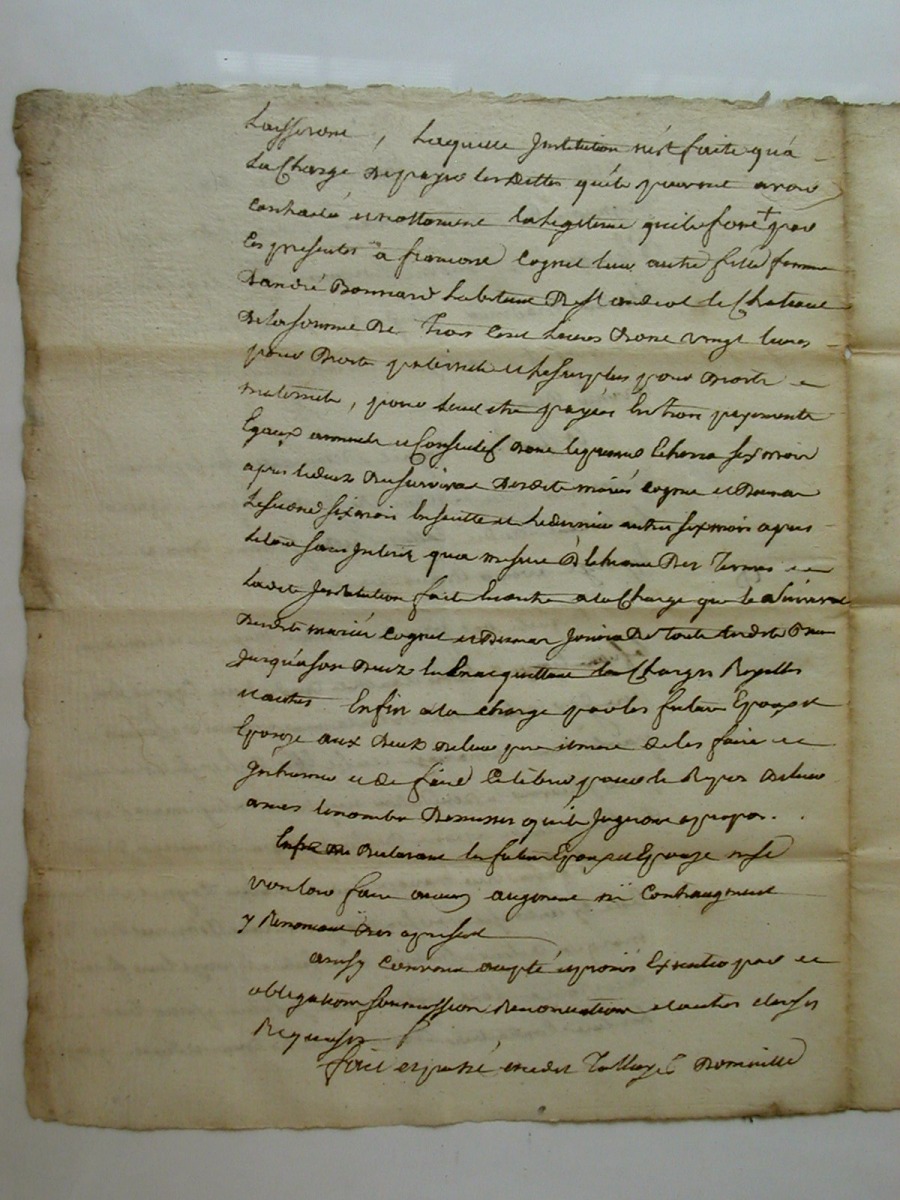 Laisseront, Laquelle Institution n'est faite qu'a
La Charge De payer les Dettes qu'ils pourront avoir
contracté et nottament la legitime qu'ils font + par
Ces presentes a francoise Cognet leur autre fille femme
D'andré Bonnard Laboureur De st andeol le Chateau
De la somme De Trois Cent Livres Dont vingt livres
pour Droits paternels et le surplus pour Droits
maternels, pour leur etre payés En trois payements
Egaux annuels et Consecutifs Dont le premier Echerra six mois
apres le deces Du survivant Desdits mariés Cognet et
Le second six mois En suitte et le dernier autres six mois apres
le tout sans Interet qu'a mesure D'echeance Des Termes
Ladite Institution fait En outre a la Charge que le survivant
Desdits mariés Cognet et Jouira De toute
Jusqu'a son Deces En acquittant les Charges Royalles
et autres. Enfin a la charge par les futurs Epoux et
Epouze aux Deux de leur pere et mere de les faire
Inhumer et de faire Celebrer pour le Repos De leurs
ames le nombre De messes qu'ils Jugeront a propos.
Declarant les futurs Epoux et Epouze ne se
vouloir faire aucun augment ni Contraugment
y Renoncant Des a present
ainsy Convenu accepté et promis Executer par
obligations soumission Renonciation et autres clauses
Requises
fait et passé audit